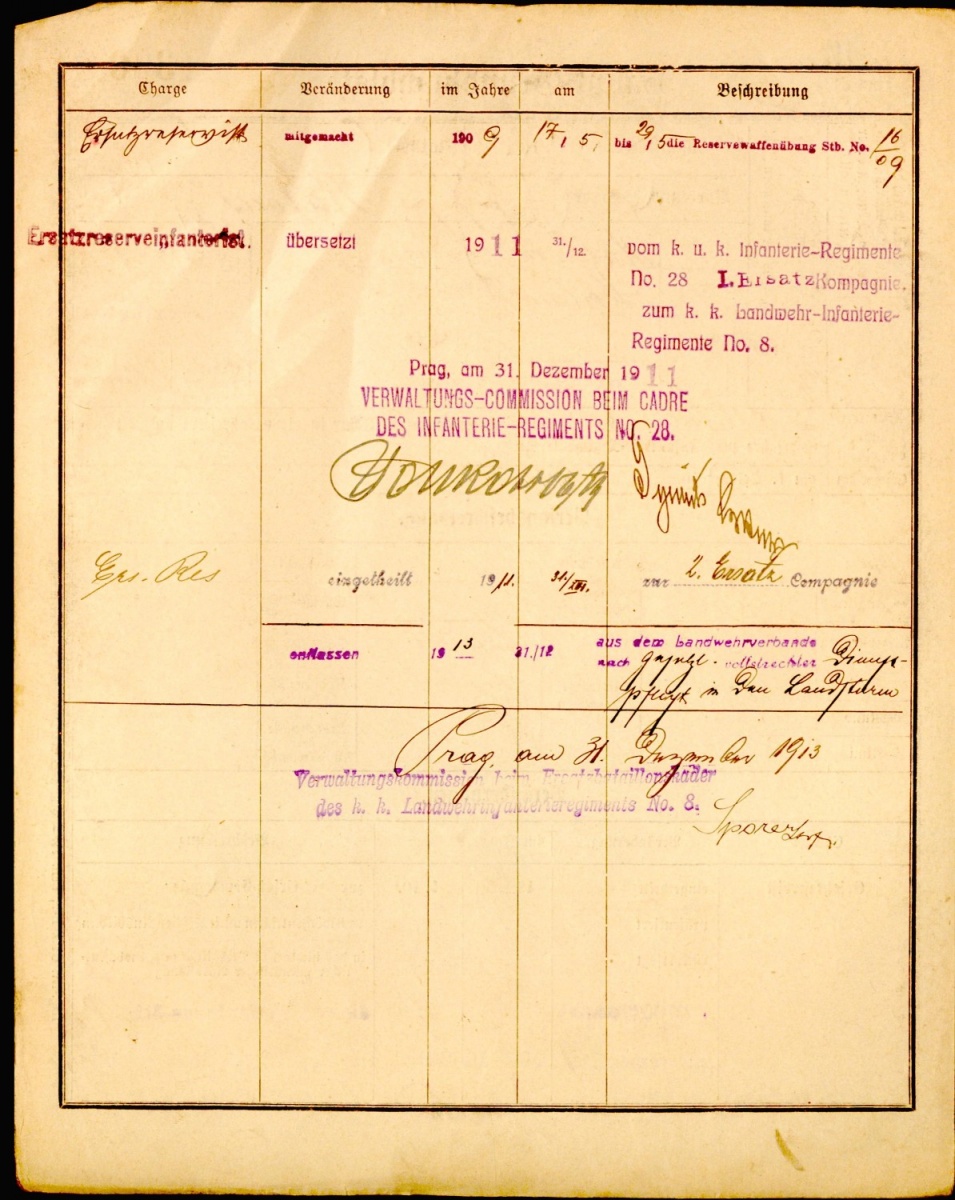 Charge Veränderung im Jahre am Beschreibung
Ersatzreservist mitgemacht 1909 17, 5. bis 29, 5 die Reservewaffenübung Stb. No. 16/09
Ersatzreserveinfanterist. übersetzt 1911 31./12. vom k. u. k. Infanterie-Regimente
No. 28 I. Ersatz Kompagnie.
zum k. k. Landwehr-Infanterie-
Regimente No. 8.
Prag, am 31. Dezember 1911
VERWALTUNGS-COMMISSION BEIM CADRE
DES INFANTERIE-REGIMENTS NO. 28.
Ers. Res eingetheilt 1911. 31/XII. zur 2. Ersatz Compagnie
entlassen 1913 31./12 aus dem Landwehrverbande
nach gesetzl. vollstreckter Dienst-
pflicht in den Landsturm
Prag, am 31. Dezember 1913
Verwaltungskommission beim Ersatzbataillonskader
des k. k. Landwehrinfanterieregiments No. 8.